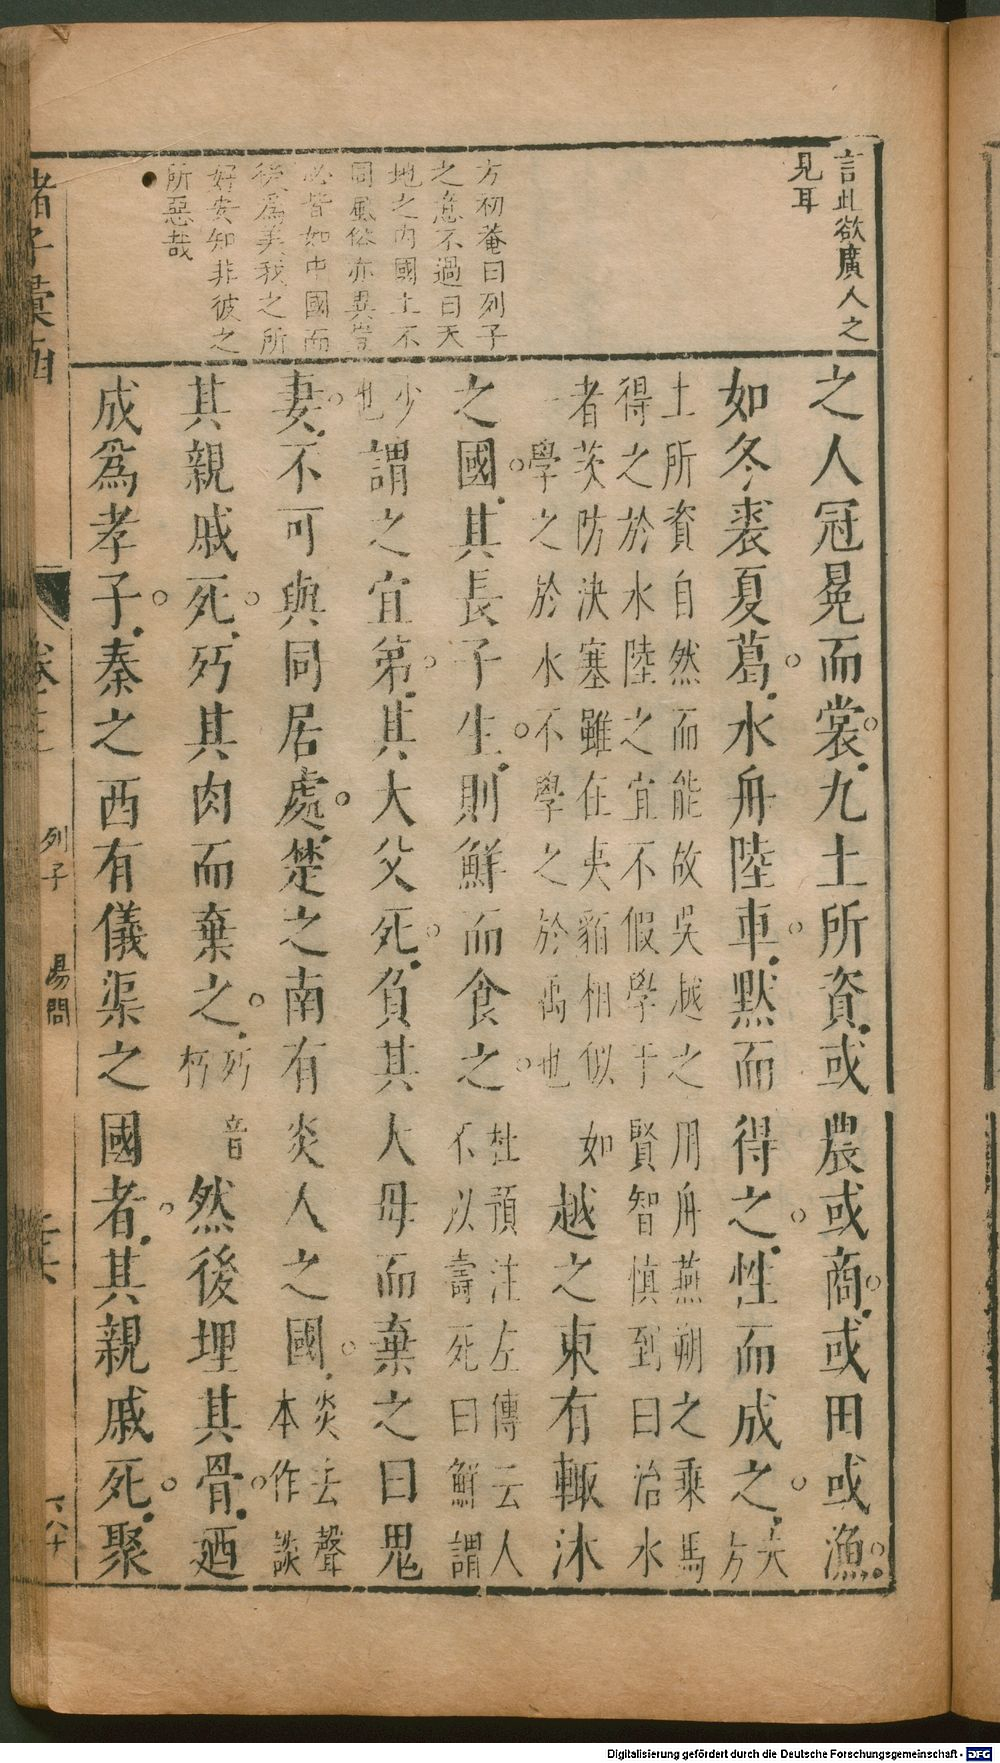 言此欲廣人之
見耳
方初菴曰列子
之意不過曰天
地之內國土不
同風俗亦異豈
必皆如中國而
後爲美我之所
好安知非彼之
所惡哉
之人冠冕而裳九土所資或農或商或田或漁
如冬裘夏葛水舟陸車默而得之性而成之夫方
土所資自然而能故吳越之用舟燕朔之乘馬
得之於水陸之宜不假學于賢智慎到曰治水
者茨防決塞雖在夷貊相似如
學之於水不學之於禹也
越之東有輒沐
之國其長子生則鮮而食之杜預注左傳云人
不以壽死曰鮮謂
少也謂之宜第其大父死負其大母而棄之曰鬼
妻不可與同居處楚之南有炎人之國炎去聲
本作談
其親戚死㱙其肉而棄之㱙音
朽然後埋其骨迺
成爲孝子秦之西有儀渠之國者其親戚死聚
諸子彙函
卷之
列子
湯問
Digitalisierung gefördert durch die Deutsche Forschungsgemeinschaft - DFG